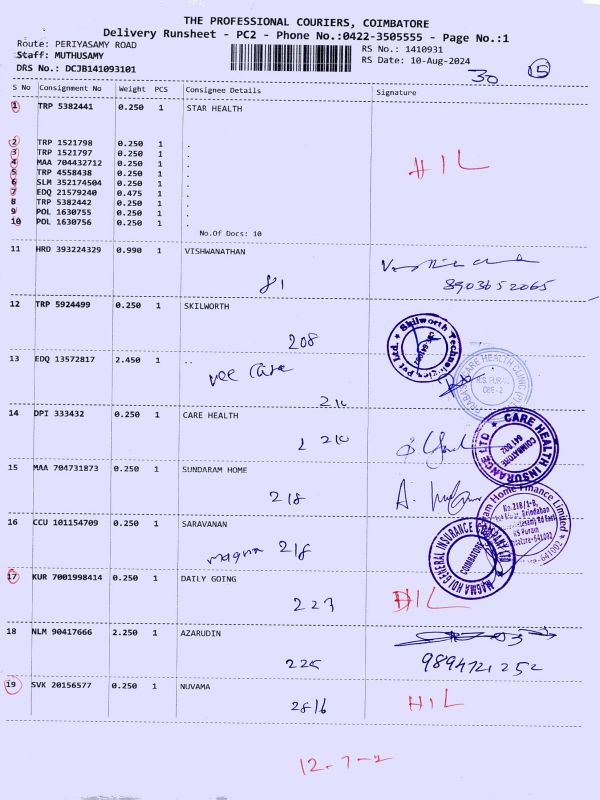 THE PROFESSIONAL COURIERS, COIMBATORE
Delivery Runsheet - PC2 - Phone No.:0422-3505555 - Page No.:1
Route: PERIYASAMY ROAD
Staff: MUTHUSAMY
DRS No.: DCJB141093101
RS No.: 1410931
RS Date: 10-Aug-2024
30 15
S No Consignment No Weight PCS Consignee Details Signature
1 TRP 5382441 0.250 1 STAR HEALTH
2 TRP 1521798 0.250 1 .
3 TRP 1521797 0.250 1 .
4 MAA 704432712 0.250 1 .
5 TRP 4558438 0.250 1 .
6 SLM 352174504 0.250 1 .
7 EDQ 21579240 0.475 1 .
8 TRP 5382442 0.250 1 .
9 POL 1630755 0.250 1 .
10 POL 1630756 0.250 1 .
HIL
No.Of Docs: 10
11 HRD 393224329 0.990 1 VISHWANATHAN
81 8903652065
12 TRP 5924499 0.250 1 SKILWORTH
208
Skilworth Technologies Pvt Ltd.
13 EDQ 13572817 2.450 1 ..
210
R.S. PURAM
CBE - 2
14 DPI 333432 0.250 1 CARE HEALTH
210
CARE HEALTH INSURANCE LTD
COIMBATORE
641 002
15 MAA 704731873 0.250 1 SUNDARAM HOME
218
Home Finance Limited
No.218/1-B,
Brindaban
RS Puram
641002
16 CCU 101154709 0.250 1 SARAVANAN
magma 218
MAGMA HDI GENERAL INSURANCE COMPANY LTD
COIMBATORE
17 KUR 7001998414 0.250 1 DAILY GOING
223 HIL
18 NLM 90417666 2.250 1 AZARUDIN
225 9894721252
19 SVK 20156577 0.250 1 NUVAMA
2816 HIL
12-7-2